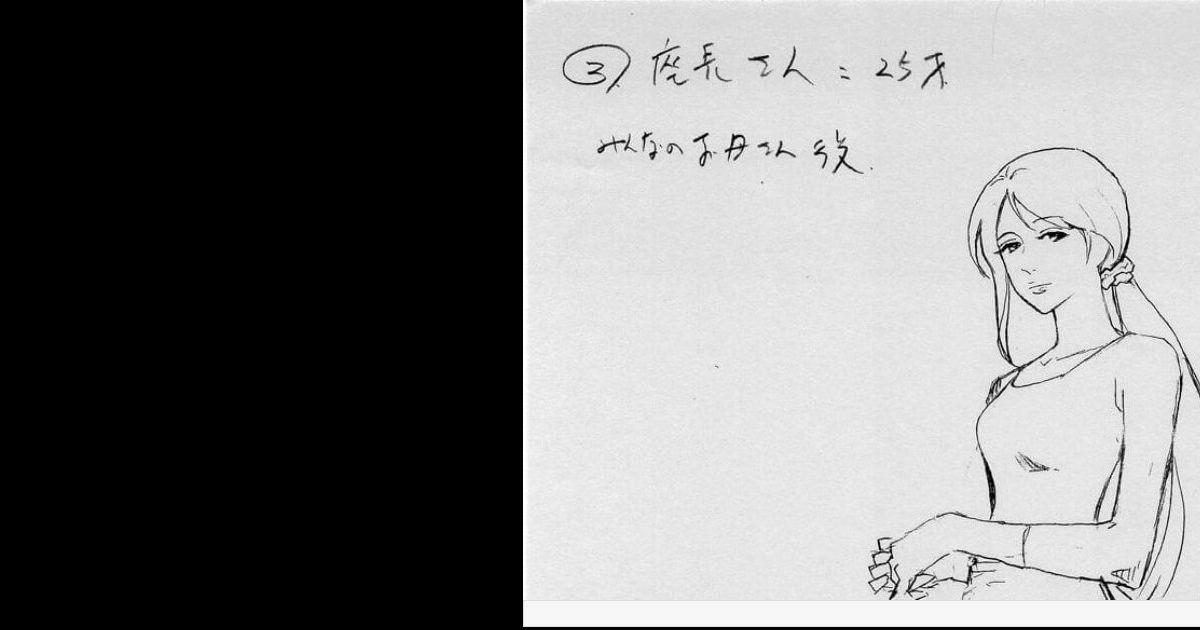 ③ 座長さん:25才
みんなのお母さん役.